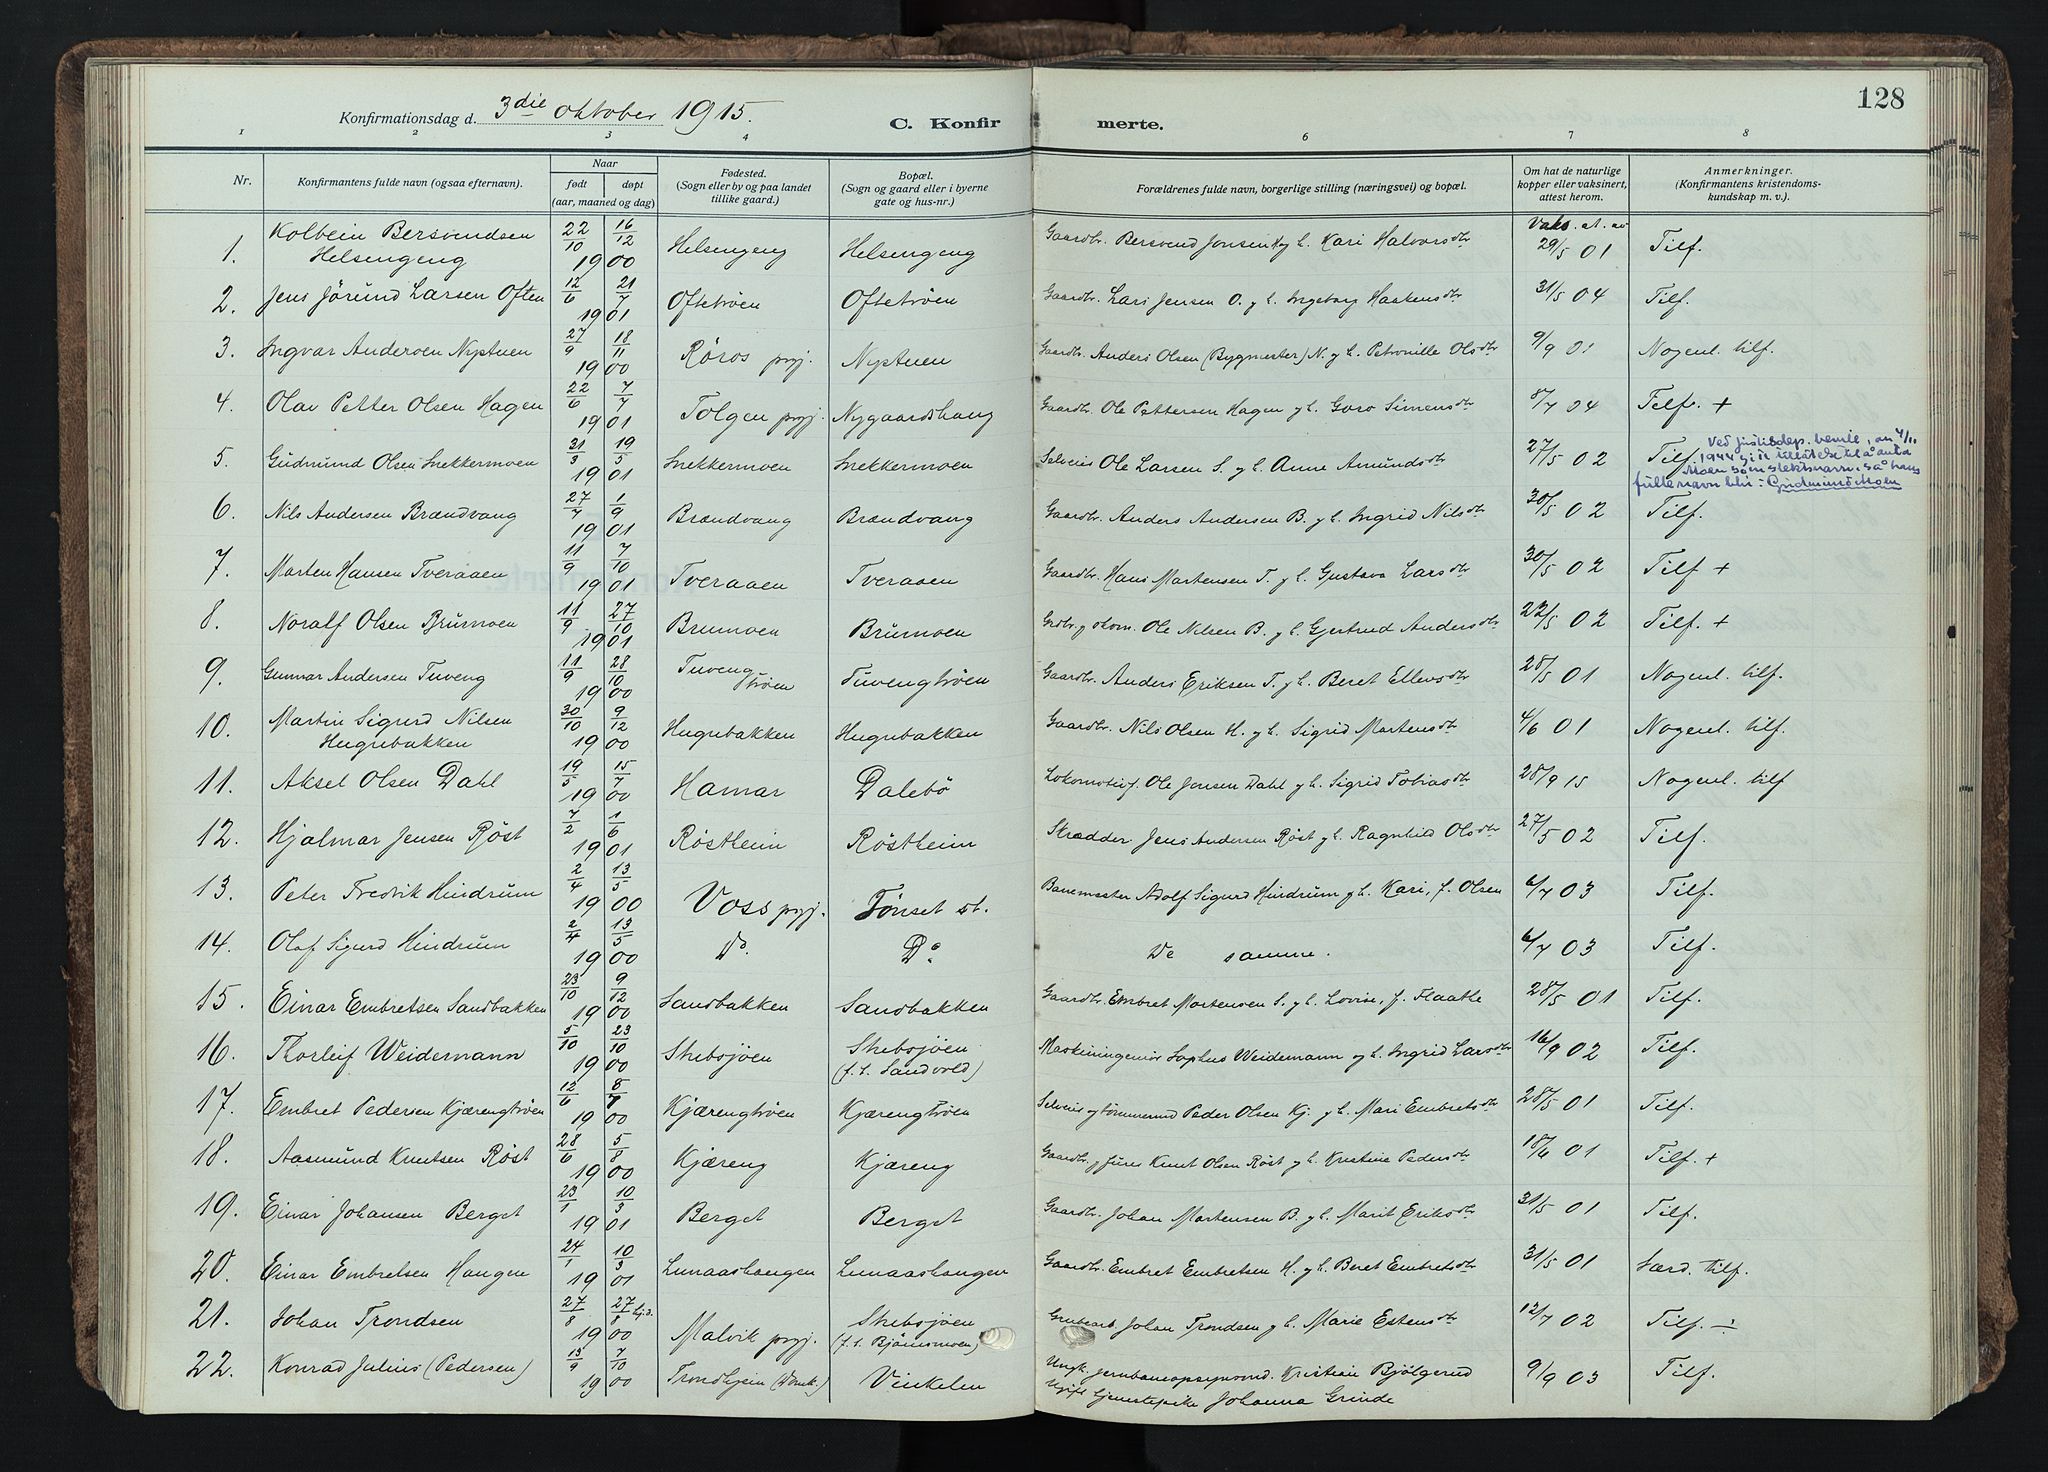 128
Konfirmationsdag d. 3die oktober 1915.
C. Konfirmerte.
1 2 3 4 6 7 8
Nr. Konfirmantens fulde navn (ogsaa efternavn). Naar født døpt (aar, maaned og dag) Fødested. (Sogn eller by og paa landet tillike gaard.) Bopæl. (Sogn og gaard eller i byerne gate og hus-nr.) Forældrenes fulde navn, borgerlige stilling (næringsvei) og bopæl. Om hat de naturlige kopper eller vaksinert, attest herom. Anmerkninger. (Konfirmantens kristendomskundskap m. v.)
1. Kolbein Bersvendsen Helsengeng 22/10 16/12 1900 Helsengeng Helsengeng Gaardbr. Bersvend Jonsen H. y h. Kari Halvorsdtr Vaks. at. av 29/5 01 Tilf.
2. Jens Jørund Larsen Often 12/6 21/7 1901 Oftetrøen Oftetrøen Gaardbr. Lars Jensen O. y h. Ingeborg Haakensdtr 31/5 04 Tilf.
3. Ingvar Andersen Nystuen 27/9 18/11 1900 Røros prgj. Nystuen Gaardbr. Anders Olsen (Bygmester) N. y h. Petronille Olsdtr 9/9 01 Nogenl. tilf.
4. Olav Petter Olsen Hagen 22/6 7/7 1901 Tolgen prgj. Nygaardshaug Gaardbr. Ole Pettersen Hagen y h. Goro Simensdtr 8/7 04 Tilf. +
5. Gudmund Olsen Snekkermoen 31/3 19/5 1901 Snekkermoen Snekkermoen Selveier Ole Larsen S. y h. Anne Amundsdtr 27/5 02 Tilf.
Ved justisdep. bemle. av 4/11 1944 gis tillatelse til å anta Moen som slektsnavn, så hans fulle navn blir: Gudmund Moen
6. Nils Andersen Brændvang 27/7 1/9 1901 Brændvang Brændvang Gaardbr. Anders Andersen B. y h. Ingrid Nilsdtr 30/5 02 Tilf.
7. Marten Hansen Tveraaen 11/9 7/10 1901 Tveraaen Tveraaen Gaardbr. Hans Martensen T. y h. Gustava Larsdtr 30/5 02 Tilf +
8. Noralf Olsen Brumoen 11/9 27/10 1901 Brumoen Brumoen Grdbr. y skom. Ole Nilsen B. y h. Gjertrud Andersdtr 22/5 02 Tilf. +
9. Gunnar Andersen Tuveng 11/9 28/10 1900 Tuvengtrøen Tuvengtrøen Gaardbr. Anders Eriksen T. y h. Beret Ellensdtr 28/5 01 Nogenl. tilf.
10. Martin Sigurd Nilsen Hugubakken 30/10 9/12 1900 Hugubakken Hugubakken Gaardbr. Nils Olsen H. y h. Sigrid Martensdtr 4/6 01 Nogenl. tilf.
11. Aksel Olsen Dahl 19/5 15/7 1900 Hamar Dalebö Lokomotivf. Ole Jonsen Dahl y h. Sigrid Tobiasdtr 28/9 15 Nogenl. tilf
12. Hjalmar Jensen Røst 7/2 1/6 1901 Røstheim Røstheim Skrædder Jens Andersen Røst y h. Ragnhild Olsdtr 27/5 02 Tilf.
13. Peter Fredrik Hindrum 2/4 13/5 1900 Voss prgj. Tønset st. Banemester Adolf Sigurd Hindrum y h. Kari, f. Olsen 6/7 03 Tilf.
14. Olaf Sigurd Hindrum 2/4 13/5 1900 Do. Do. De samme. 6/7 03 Tilf.
15. Einar Embretsen Sandbakken 23/10 9/12 1900 Sandbakken Sandbakken Gaardbr. Embret Mortensen S. y h. Lovise, f. Flaathe 28/5 01 Tilf.
16. Thorleif Weidemann 5/10 23/10 1900 Skebsjøen Skebsjøen (f. t. Sandvold) Maskiningeniør Sophus Weidemann y h. Ingrid Larsdtr 16/9 02 Tilf.
17. Embret Pedersen Kjærengtrøen 12/6 8/7 1900 Kjærengtrøen Kjærengtrøen Selveier y tømmermd Peder Olsen Kj. y h. Mari Embretsdtr 28/5 01 Tilf.
18. Aasmund Knutsen Røst 28/6 5/8 1900 Kjæreng Kjæreng Gaardbr. y smed Knut Olsen Røst y h. Kristine Pedersdtr 18/6 01 Tilf. +
19. Einar Johansen Berget 23/1 10/3 1901 Berget Berget Gaardbr. Johan Mortensen B. y h. Marit Eriksdtr 31/5 01 Tilf.
20. Einar Embretsen Haugen 24/1 10/3 1901 Lunaashaugen Lunaashaugen Gaardbr. Embret Embretsen H. y h. Beret Embretsdtr 31/5 01 Særd. tilf.
21. Johan Trondsen 27/8 27/8 hj.d. 1900 Malvik prgj. Skebsjøen (f. t. Bjørnsmoen) Grubearb. Johan Trondsen y h. Marie Estensdtr 12/7 02 Tilf. ÷
22. Konrad Julius (Pedersen) 13/9 7/10 1900 Trondhjem (Domk.) Vinkelen Ungk. jernbaneopsynsmd. Kristian Bjølgerud Ugift tjenestepike Johanna Grinde 9/9 03 Tilf.